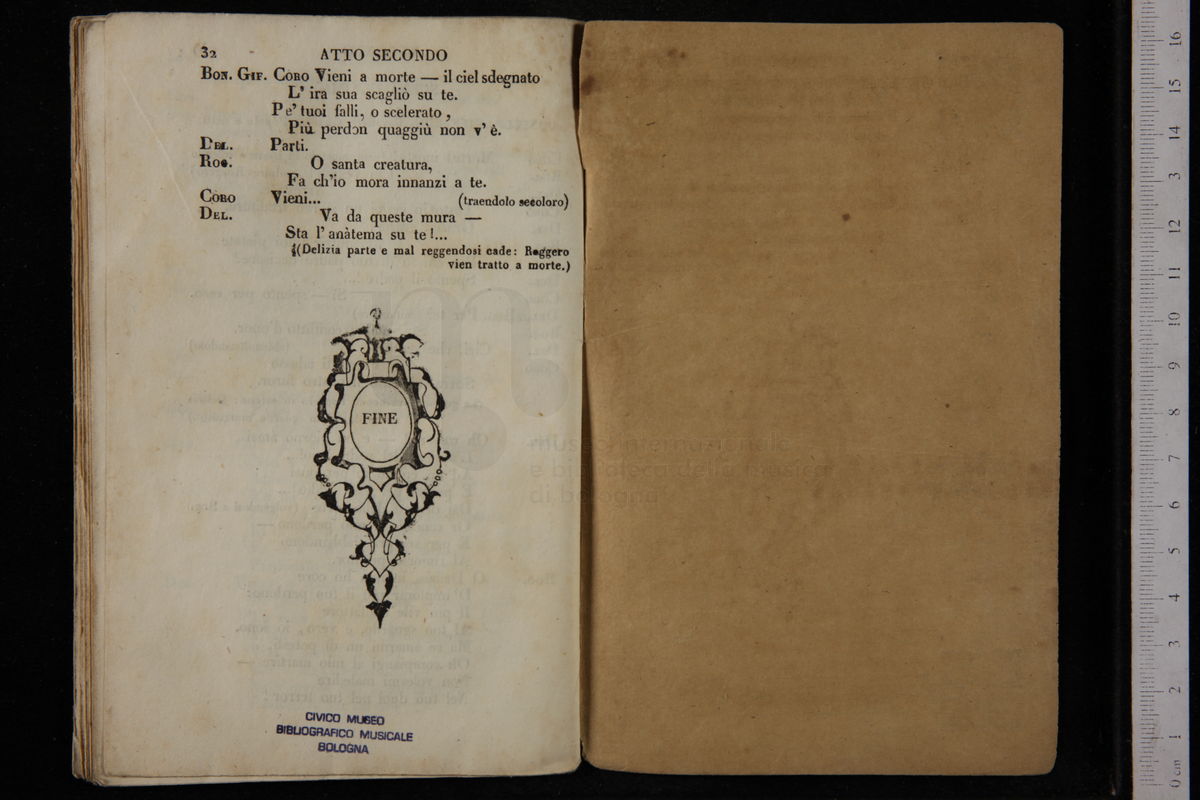 32 ATTO SECONDO
BON. GIF. CORO Vieni a morte — il ciel sdegnato
L' ira sua scagliò su te.
Pe' tuoi falli, o scelerato,
Più perdon quaggiù non v' è.
DEL. Parti.
ROG. O santa creatura,
Fa ch'io mora innanzi a te.
CORO Vieni... (traendolo secoloro)
DEL. Va da queste mura —
Sta l' anàtema su te!...
(Delizia parte e mal reggendosi cade: Roggero
vien tratto a morte.)
FINE
CIVICO MUSEO
BIBLIOGRAFICO MUSICALE
BOLOGNA
museo internazionale
e biblioteca della musica
di bologna
0 cm 1 2 3 4 5 6 7 8 9 10 11 12 13 14 15 16